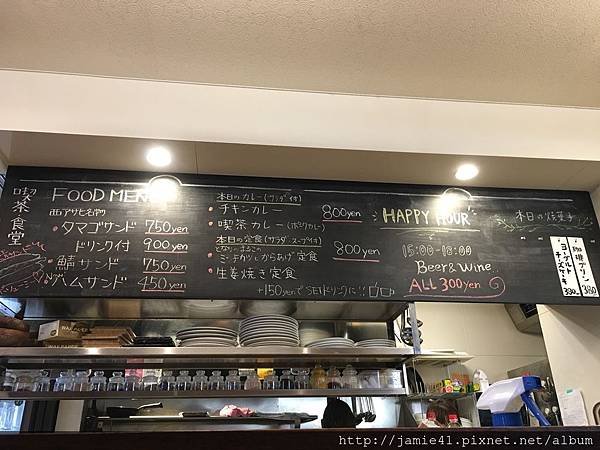 喫茶食堂
FOOD MENU
西アサヒ名物
・タマゴサンド 750yen
ドリンク付 900yen
・鯖サンド 750yen
ハムサンド 450yen
本日のカレー(サラダ付)
・チキンカレー 800yen
・喫茶カレー(ポークカレー)
本日の定食(サラダ・スープ付)
とり から揚げ定食 800yen
・生姜焼き定食
+150yenで SETドリンクに!!
HAPPY HOUR
15:00-18:00
Beer & Wine
ALL 300yen
本日の焼菓子
珈琲プリン 380
ヨーグルトチーズケーキ 380
http://jamie41.pixnet.net/album